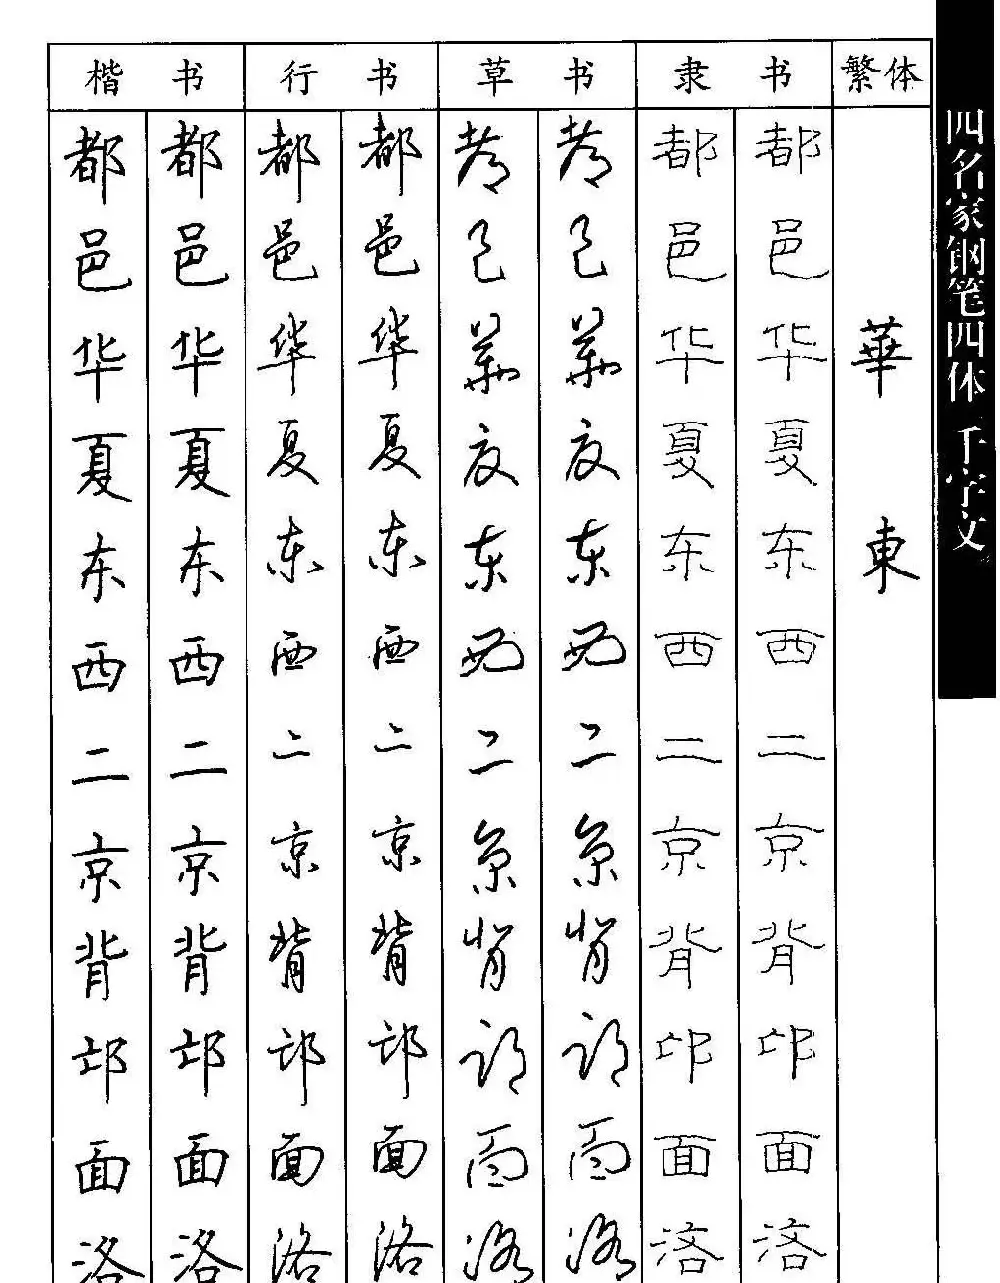 楷书 行书 草书 隶书 繁体
都 都 都 都 都 都 都 都
邑 邑 邑 邑 邑 邑 邑 邑
华 华 华 华 华 华 华 华 華
夏 夏 夏 夏 夏 夏 夏 夏
东 东 东 东 东 东 东 东 東
西 西 西 西 西 西 西 西
二 二 二 二 二 二 二 二
京 京 京 京 京 京 京 京
背 背 背 背 背 背 背 背
邙 邙 邙 邙 邙 邙 邙 邙
面 面 面 面 面 面 面 面
洛 洛 洛 洛 洛 洛 洛 洛
四名家钢笔四体 千字文